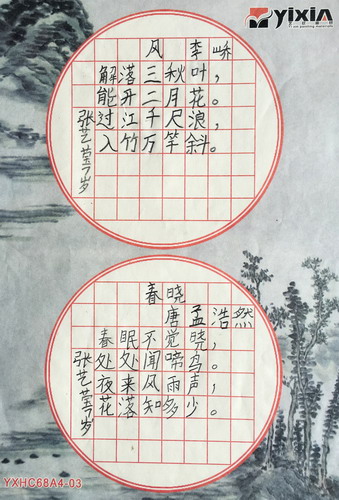 YIXIA
风 李峤
解落三秋叶，
能开二月花。
过江千尺浪，
入竹万竿斜。
张艺莹7岁
春晓
唐 孟浩然
春眠不觉晓，
处处闻啼鸟。
夜来风雨声，
花落知多少。
张艺莹7岁
YXHC68A4-03